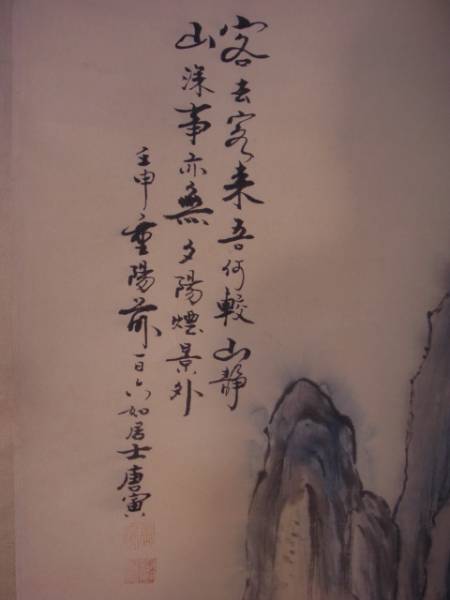 客去客来吾何較山静
山深事亦無夕陽煙景外
壬申重陽前一日六如居士唐寅